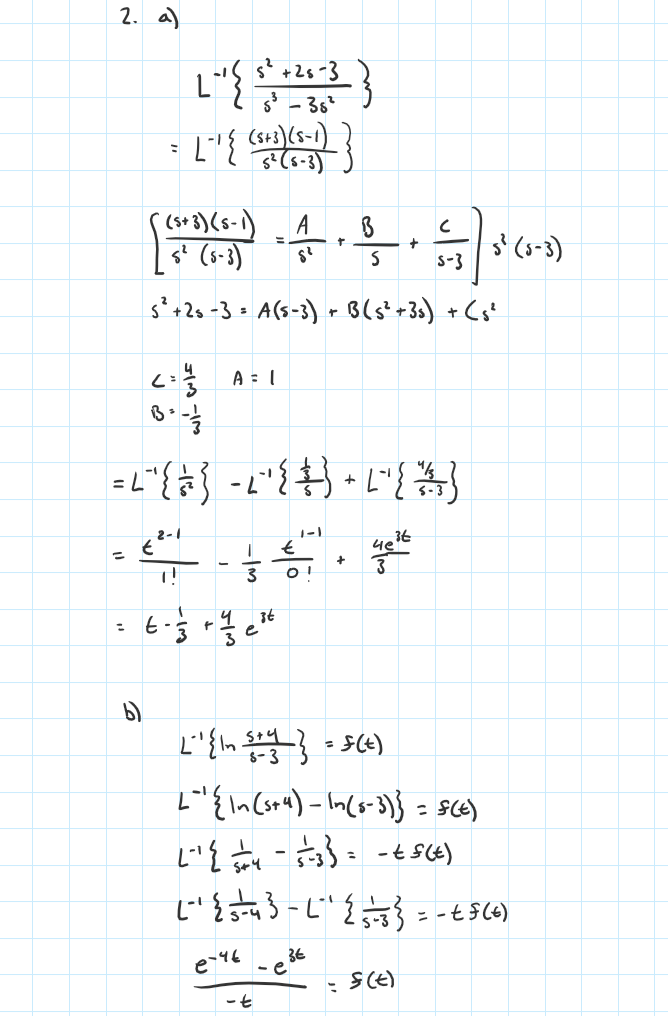 2. a)
L⁻¹{ (s² + 2s - 3)/(s³ - 3s²) }
= L⁻¹{ (s+3)(s-1)/(s²(s-3)) }
[ (s+3)(s-1)/(s² (s-3)) = A/s² + B/s + C/(s-3) ] s²(s-3)
s² + 2s - 3 = A(s-3) + B(s² + 3s) + Cs²
C = 4/3 A = 1
B = -1/3
= L⁻¹{ 1/s² } - L⁻¹{ (1/3)/s } + L⁻¹{ (4/3)/(s-3) }
= t²⁻¹/1! - 1/3 t¹⁻¹/0! + 4e³ᵗ/3
= t - 1/3 + 4/3 e³ᵗ
b)
L⁻¹{ ln (s+4)/(s-3) } = f(t)
L⁻¹{ ln(s+4) - ln(s-3) } = f(t)
L⁻¹{ 1/(s+4) - 1/(s-3) } = -t f(t)
L⁻¹{ 1/(s-4) } - L⁻¹{ 1/(s-3) } = -t f(t)
(e⁻⁴ᵗ - e³ᵗ)/(-t) = f(t)